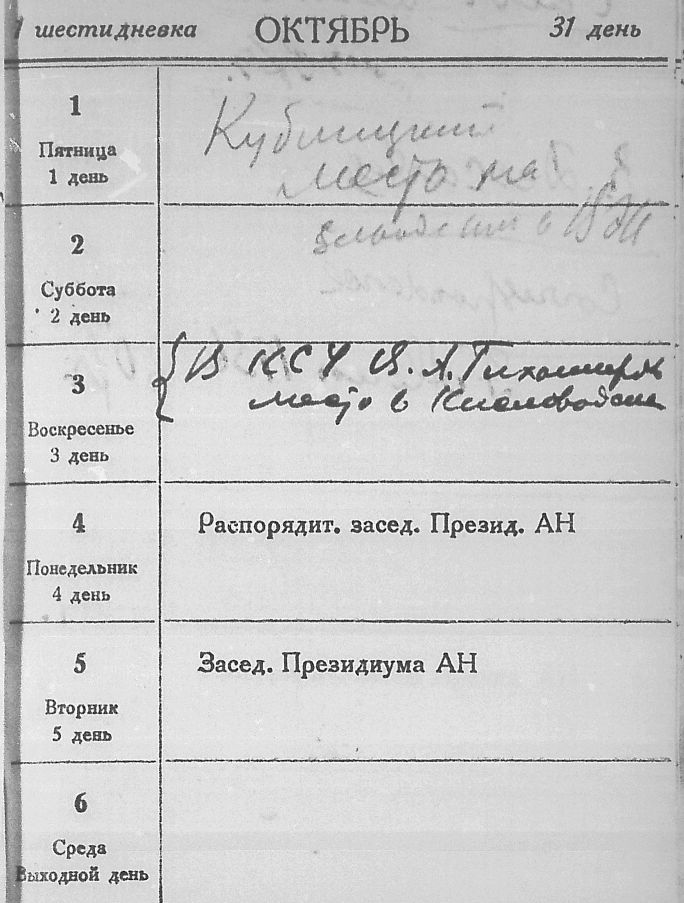 1 шестидневка ОКТЯБРЬ 31 день
1
Пятница
1 день
Кублицкий
место на
в
2
Суббота
2 день
3
Воскресенье
3 день
В КСУ В. А. Тихомиров
место в Кисловодске
4
Понедельник
4 день
Распорядит. засед. Презид. АН
5
Вторник
5 день
Засед. Президиума АН
6
Среда
Выходной день